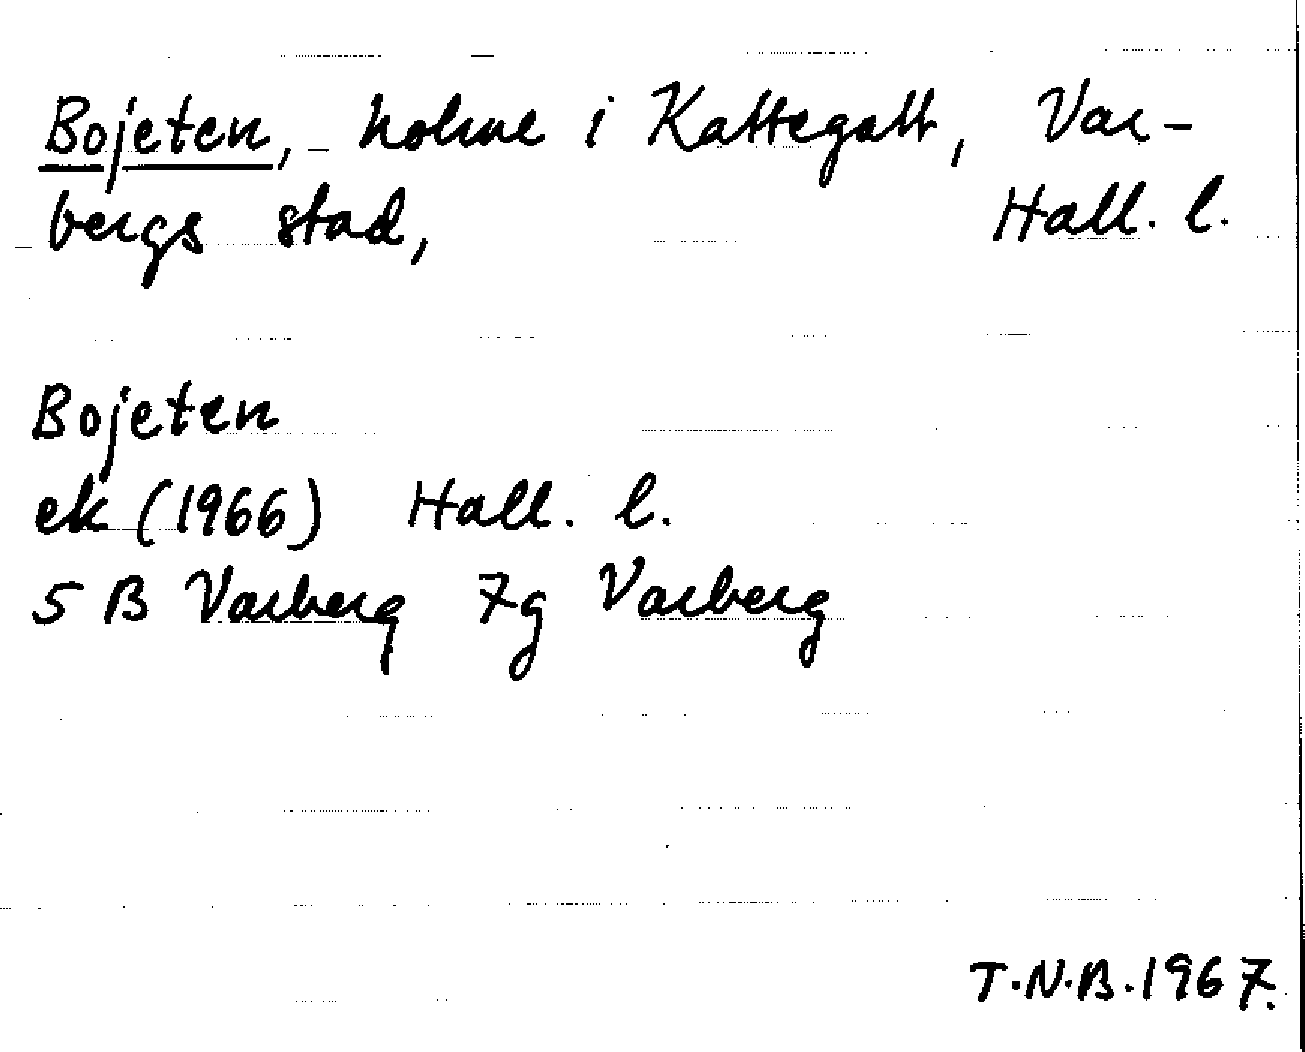 Bojeten, holme i Kattegatt, Var-
bergs stad, Hall. l.
Bojeten
ek (1966) Hall. l.
5 B Varberg 7g Varberg
T.N.B. 1967.